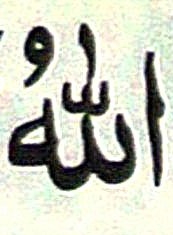 اللّهُ